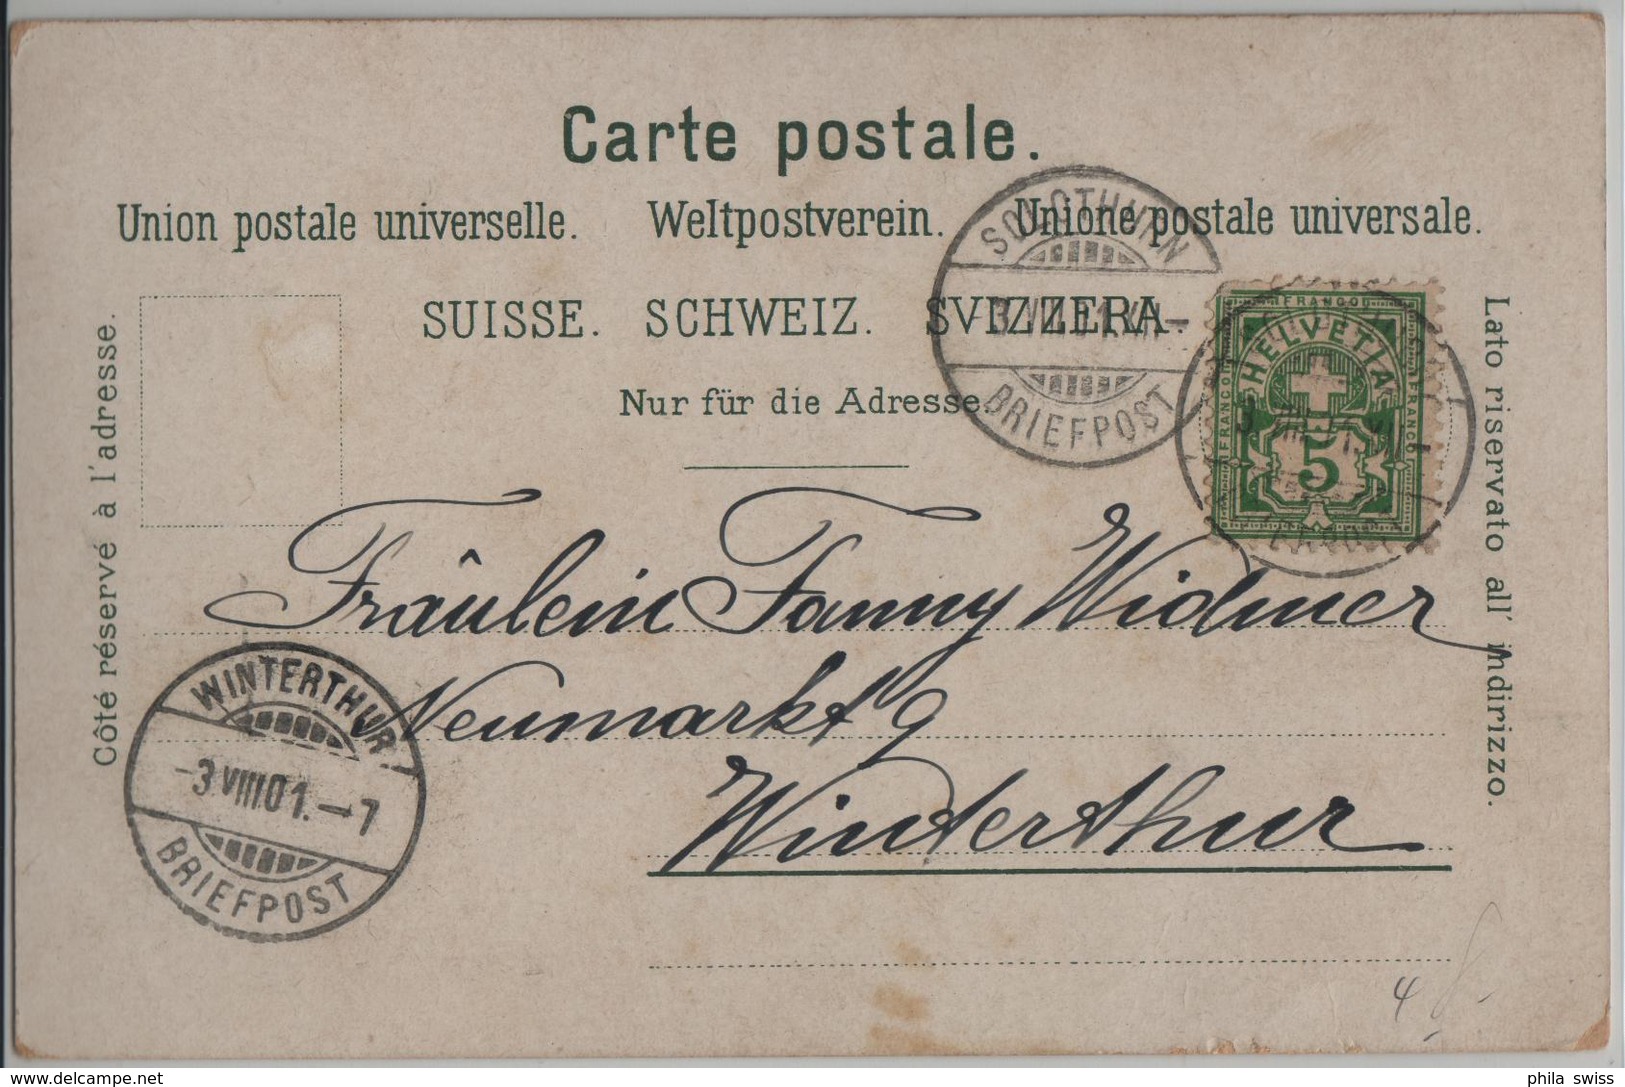 Carte postale.
Union postale universelle. Weltpostverein. Unione postale universale.
SUISSE. SCHWEIZ. SVIZZERA.
Nur für die Adresse.
Côté réservé à l'adresse.
Lato riservato all' indirizzo.
SOLOTHURN
BRIEFPOST
FRANCO
HELVETIA
FRANCO
FRANCO
5
Fräulein Fanny Widmer
Neumarkt 9
Winterthur
WINTERTHUR
-3 VIII 01. -7
BRIEFPOST
4
phila swiss